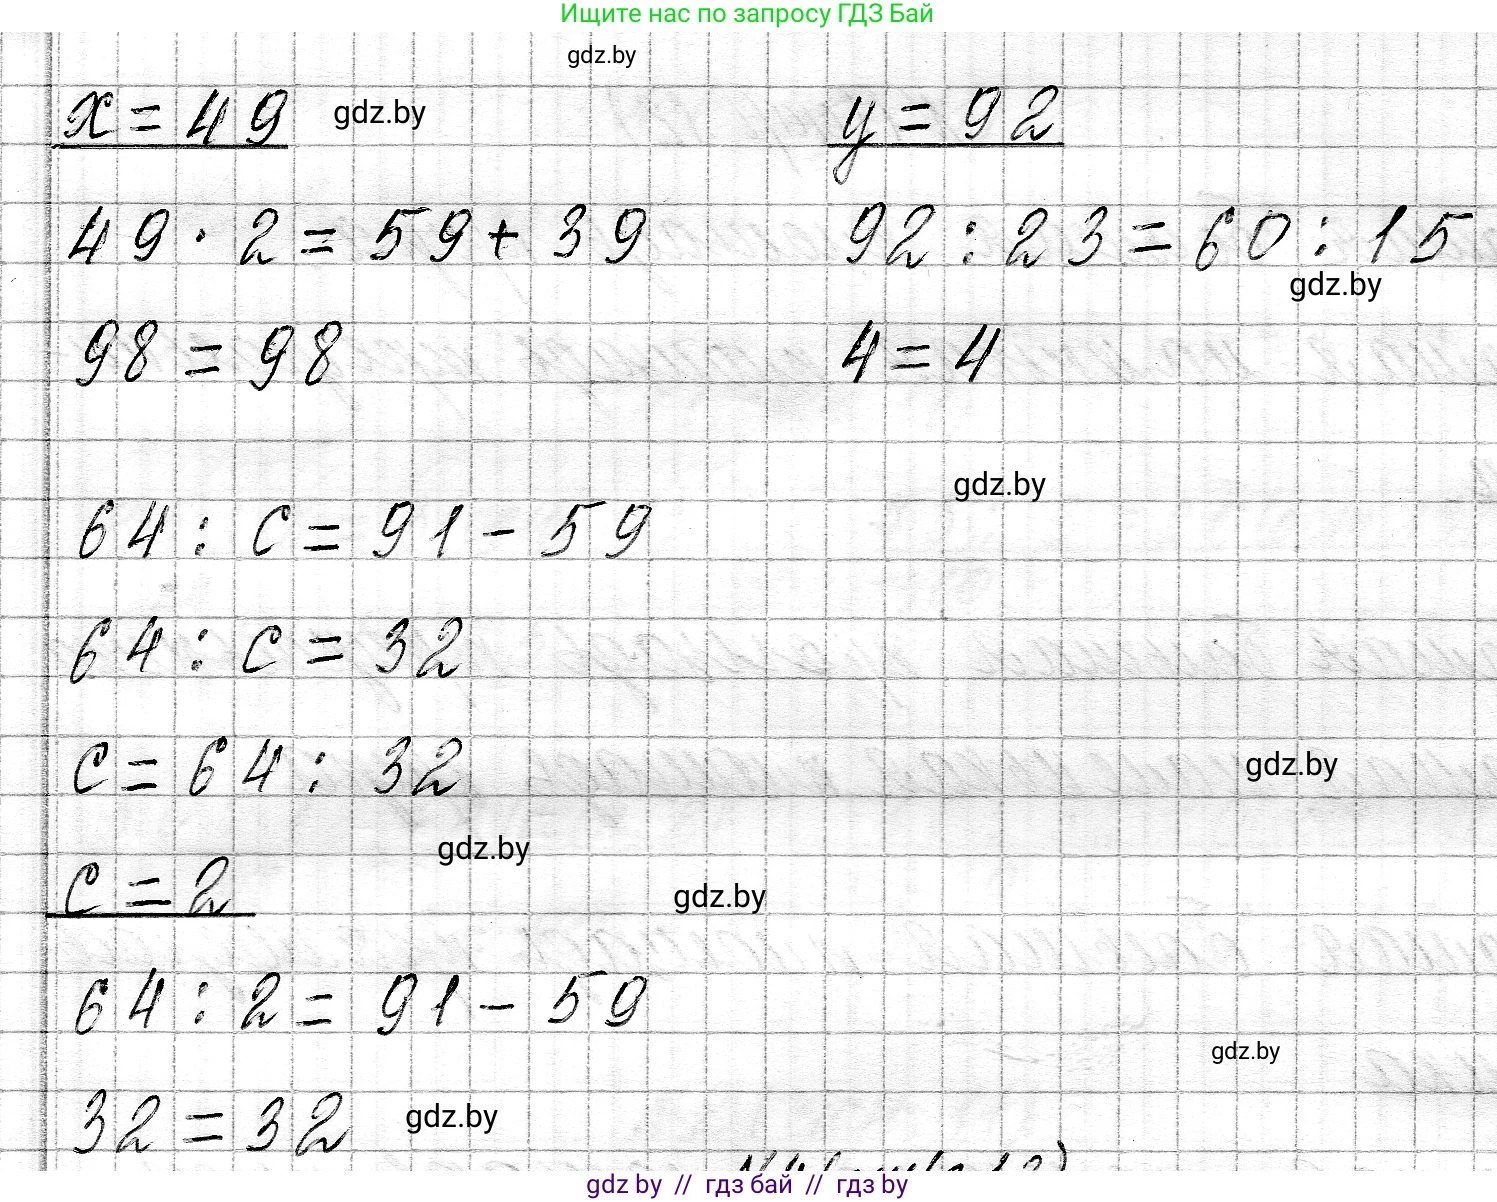 Ищите нас по запросу ГДЗ Бай
gdz.by
x = 49 gdz.by y = 92
49 · 2 = 59 + 39 92 : 23 = 60 : 15
gdz.by
98 = 98 4 = 4
gdz.by
64 : c = 91 - 59
64 : c = 32
c = 64 : 32 gdz.by
gdz.by
c = 2 gdz.by
64 : 2 = 91 - 59
gdz.by
32 = 32 gdz.by
gdz by // гдз бай // гдз by